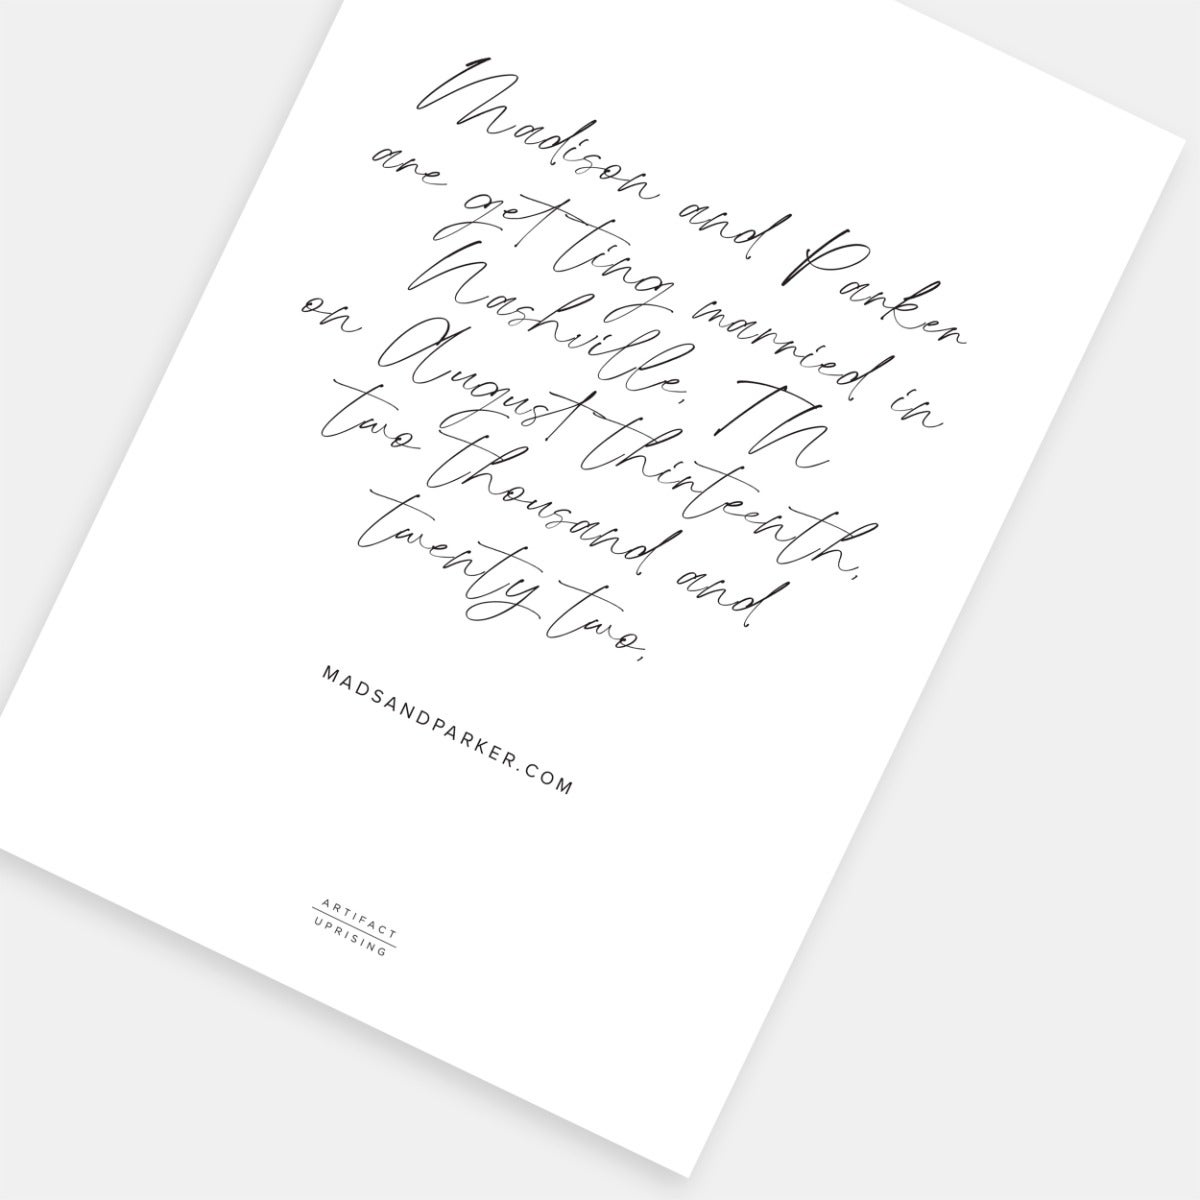 Madison and Parker
are getting married in
Nashville, TN
on August thirteenth,
two thousand and
twenty two,
MADSANDPARKER.COM
ARTIFACT
UPRISING